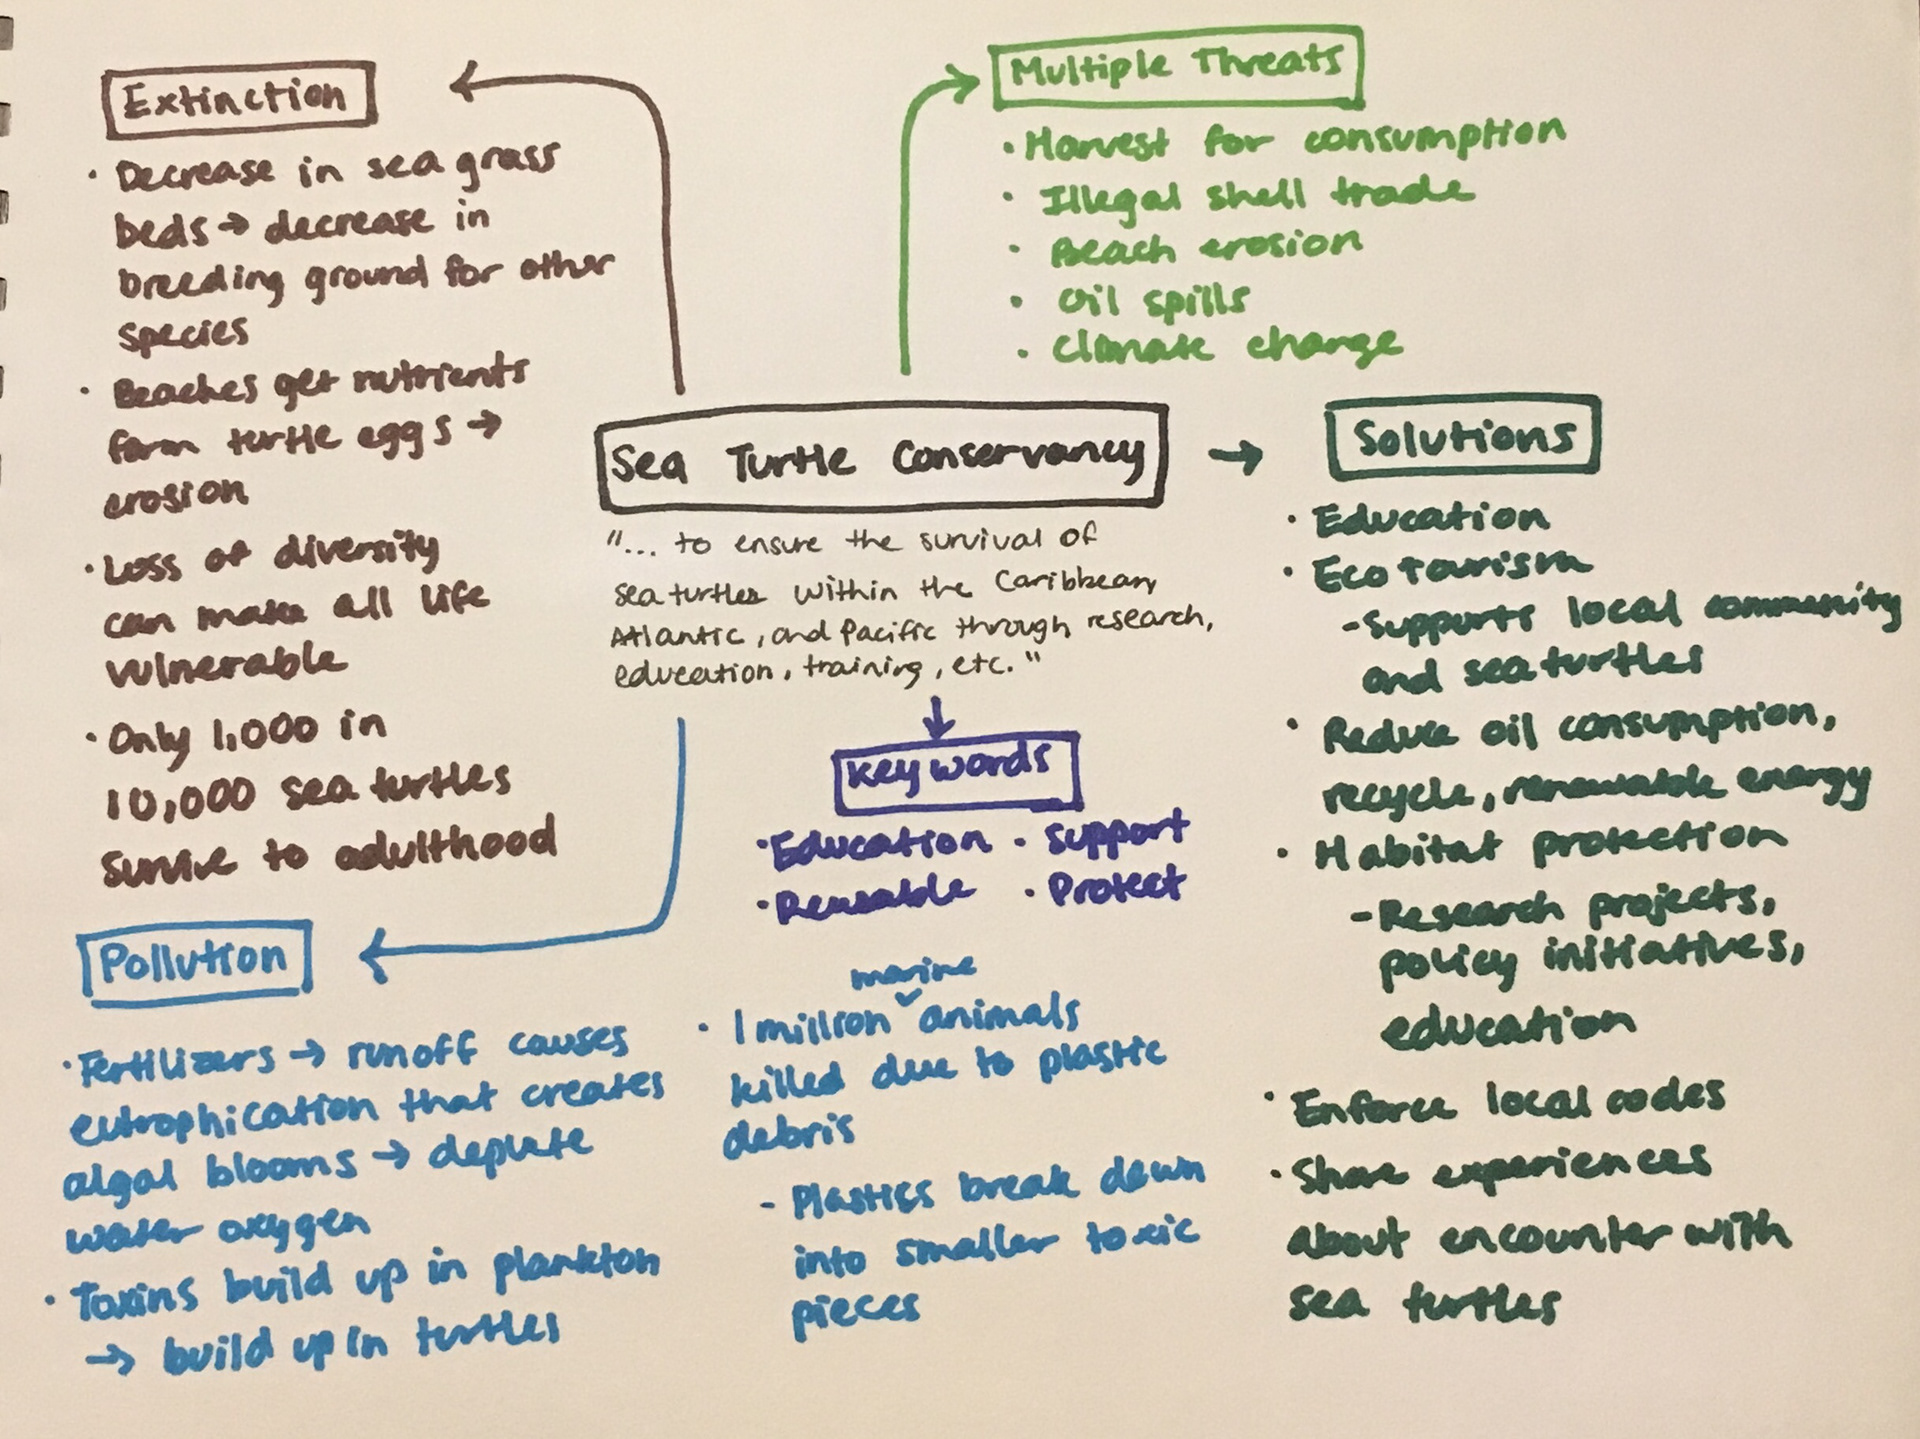 Extinction
· Decrease in sea grass
beds → decrease in
breeding ground for other
species
· Beaches get nutrients
form turtle eggs →
erosion
· Loss of diversity
can make all life
vulnerable
· Only 1,000 in
10,000 sea turtles
survive to adulthood
Multiple Threats
· Harvest for consumption
· Illegal shell trade
· Beach erosion
· Oil spills
· Climate change
Sea Turtle Conservancy
"... to ensure the survival of
sea turtles within the Caribbean,
Atlantic, and Pacific through research,
education, training, etc."
Keywords
· Education · Support
· Reusable · Protect
Solutions
· Education
· Eco tourism
- Supports local community
and sea turtles
· Reduce oil consumption,
recycle, renewable energy
· Habitat protection
- Research projects,
policy initiatives,
education
· Enforce local codes
· Share experiences
about encounter with
sea turtles
Pollution
· Fertilizers → runoff causes
eutrophication that creates
algal blooms → deplete
water oxygen
· Toxins build up in plankton
→ build up in turtles
marine
· 1 million animals
killed due to plastic
debris
- Plastics break down
into smaller toxic
pieces